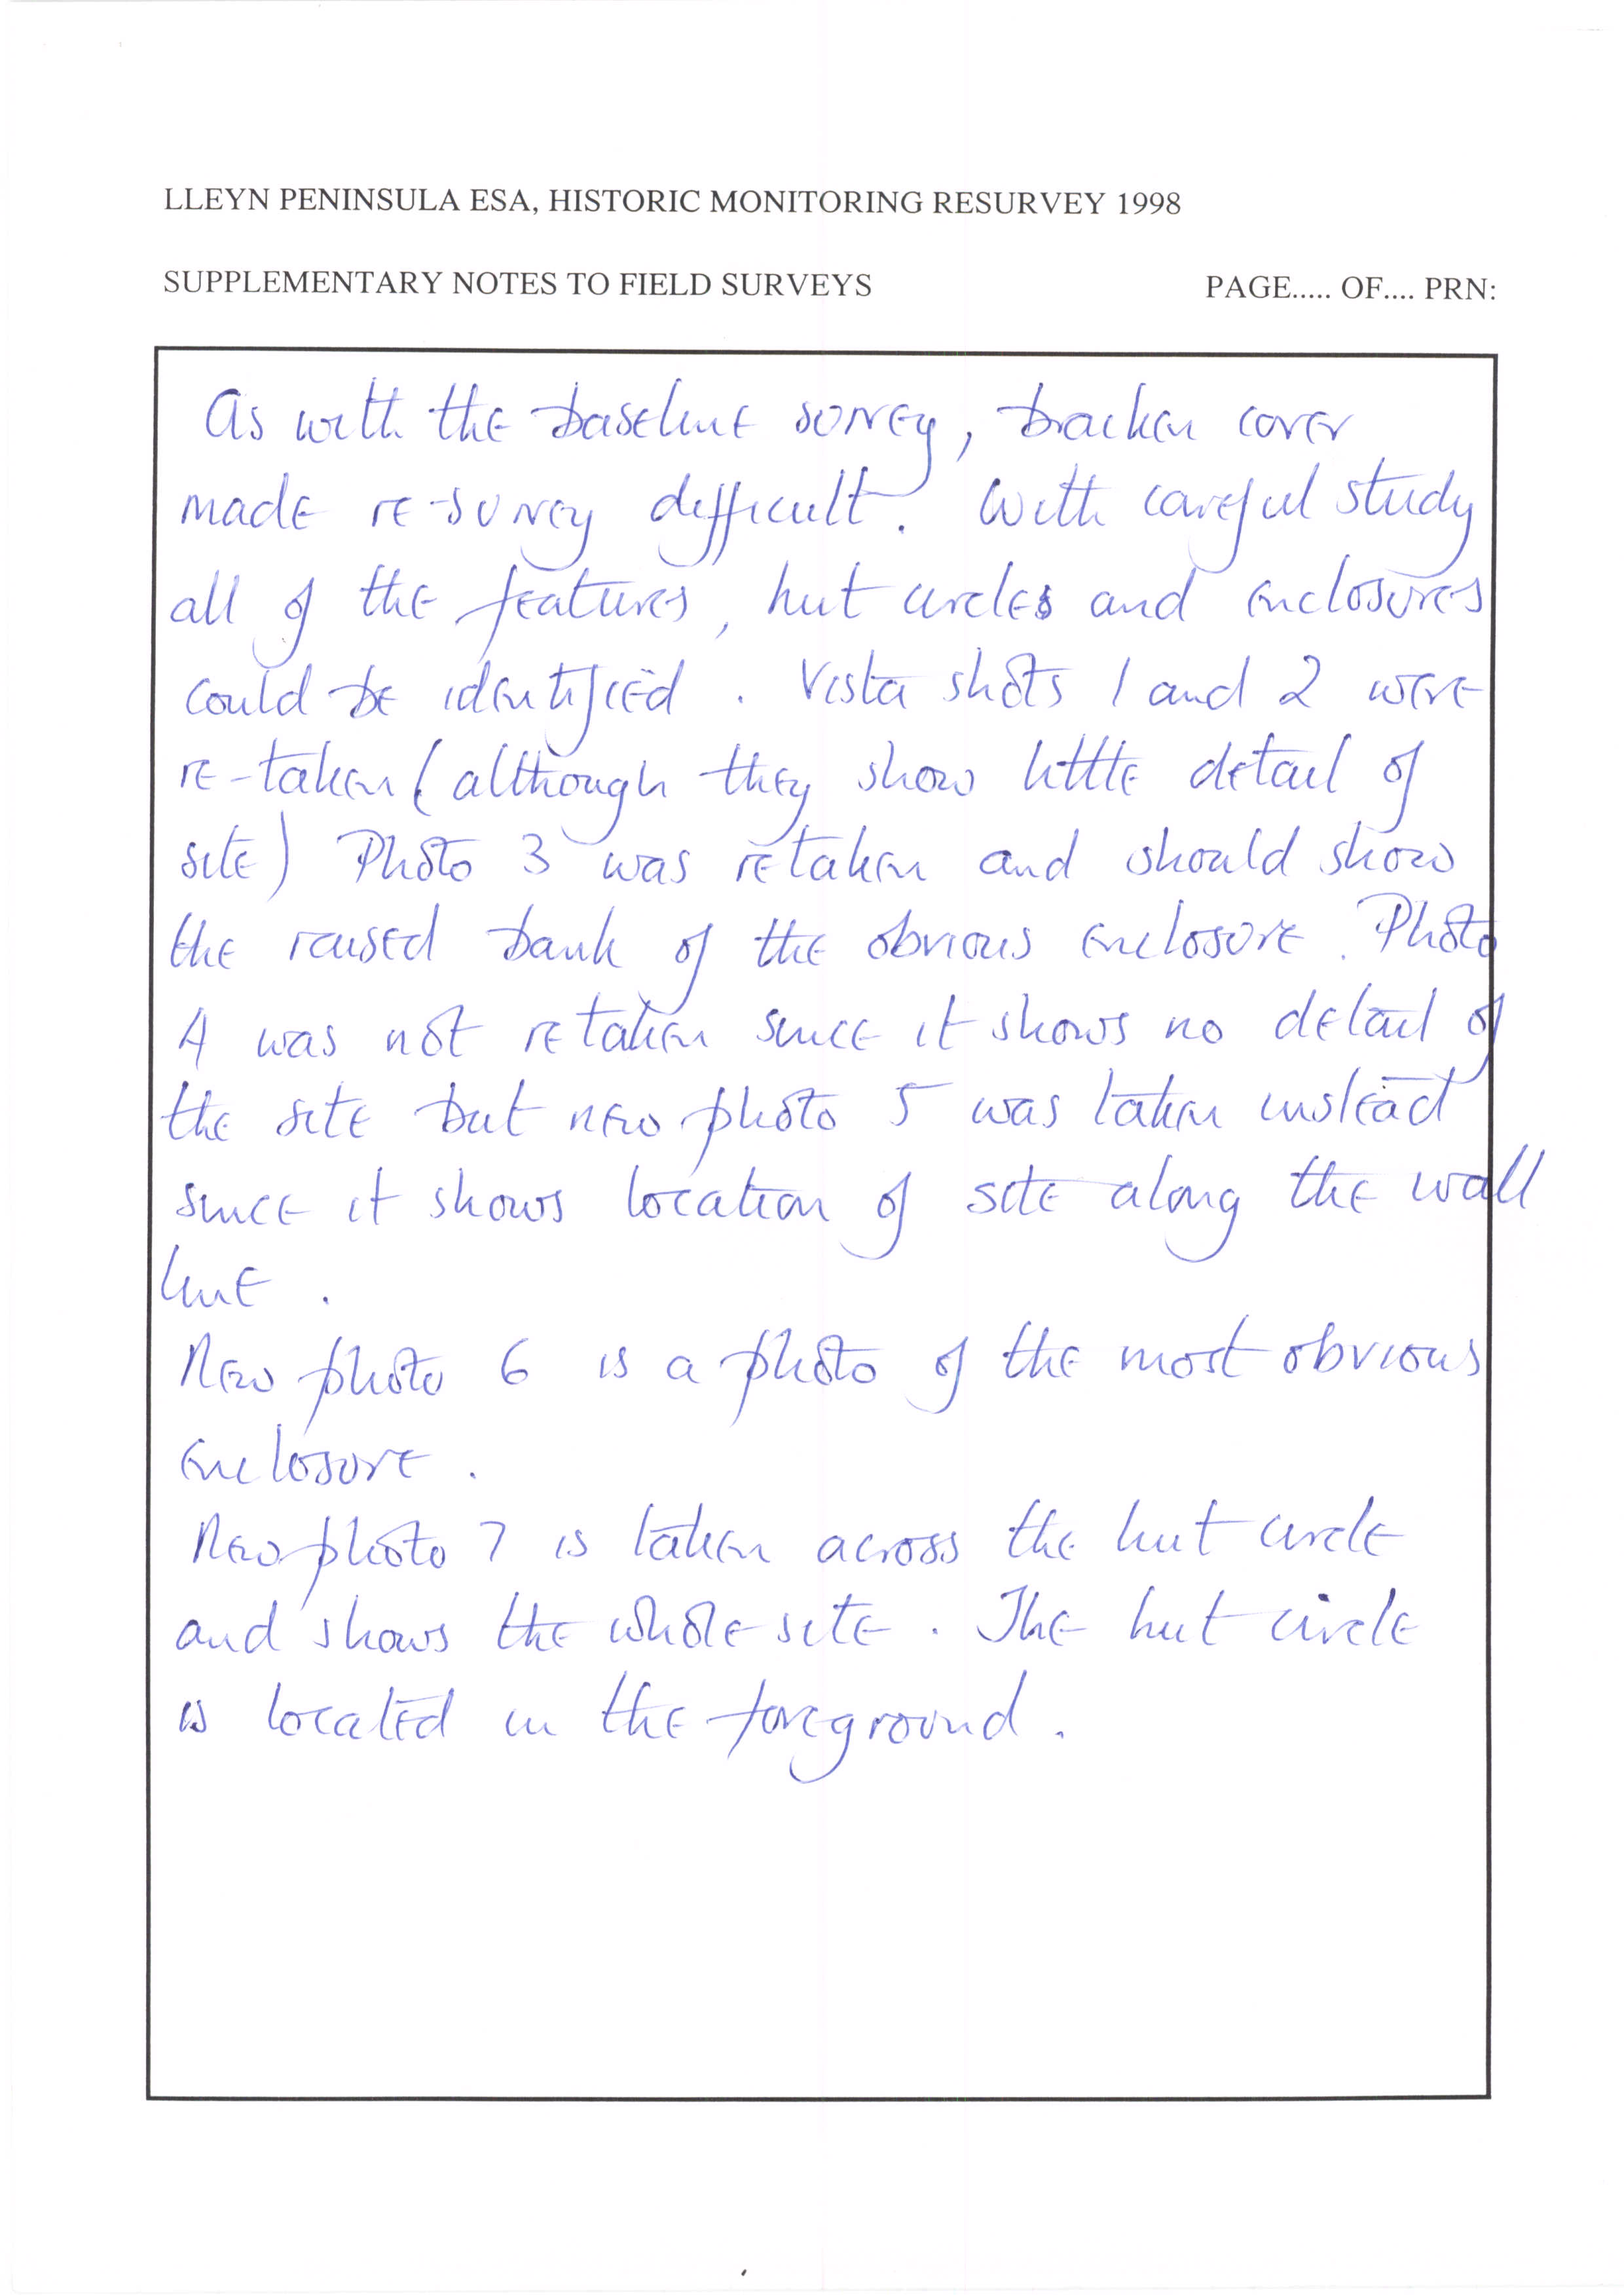 LLEYN PENINSULA ESA, HISTORIC MONITORING RESURVEY 1998
SUPPLEMENTARY NOTES TO FIELD SURVEYS PAGE..... OF.... PRN:
As with the baseline survey, bracken cover
made re-survey difficult. With careful study
all of the features, hut circles and enclosures
could be identified. Vista shots 1 and 2 were
re-taken (although they show little detail of
site) Photo 3 was retaken and should show
the raised bank of the obvious enclosure. Photo
4 was not retaken since it shows no detail of
the site but new photo 5 was taken instead
since it shows location of site along the wall
line.
New photo 6 is a photo of the most obvious
enclosure.
New photo 7 is taken across the hut circle
and shows the whole site. The hut circle
is located in the foreground.